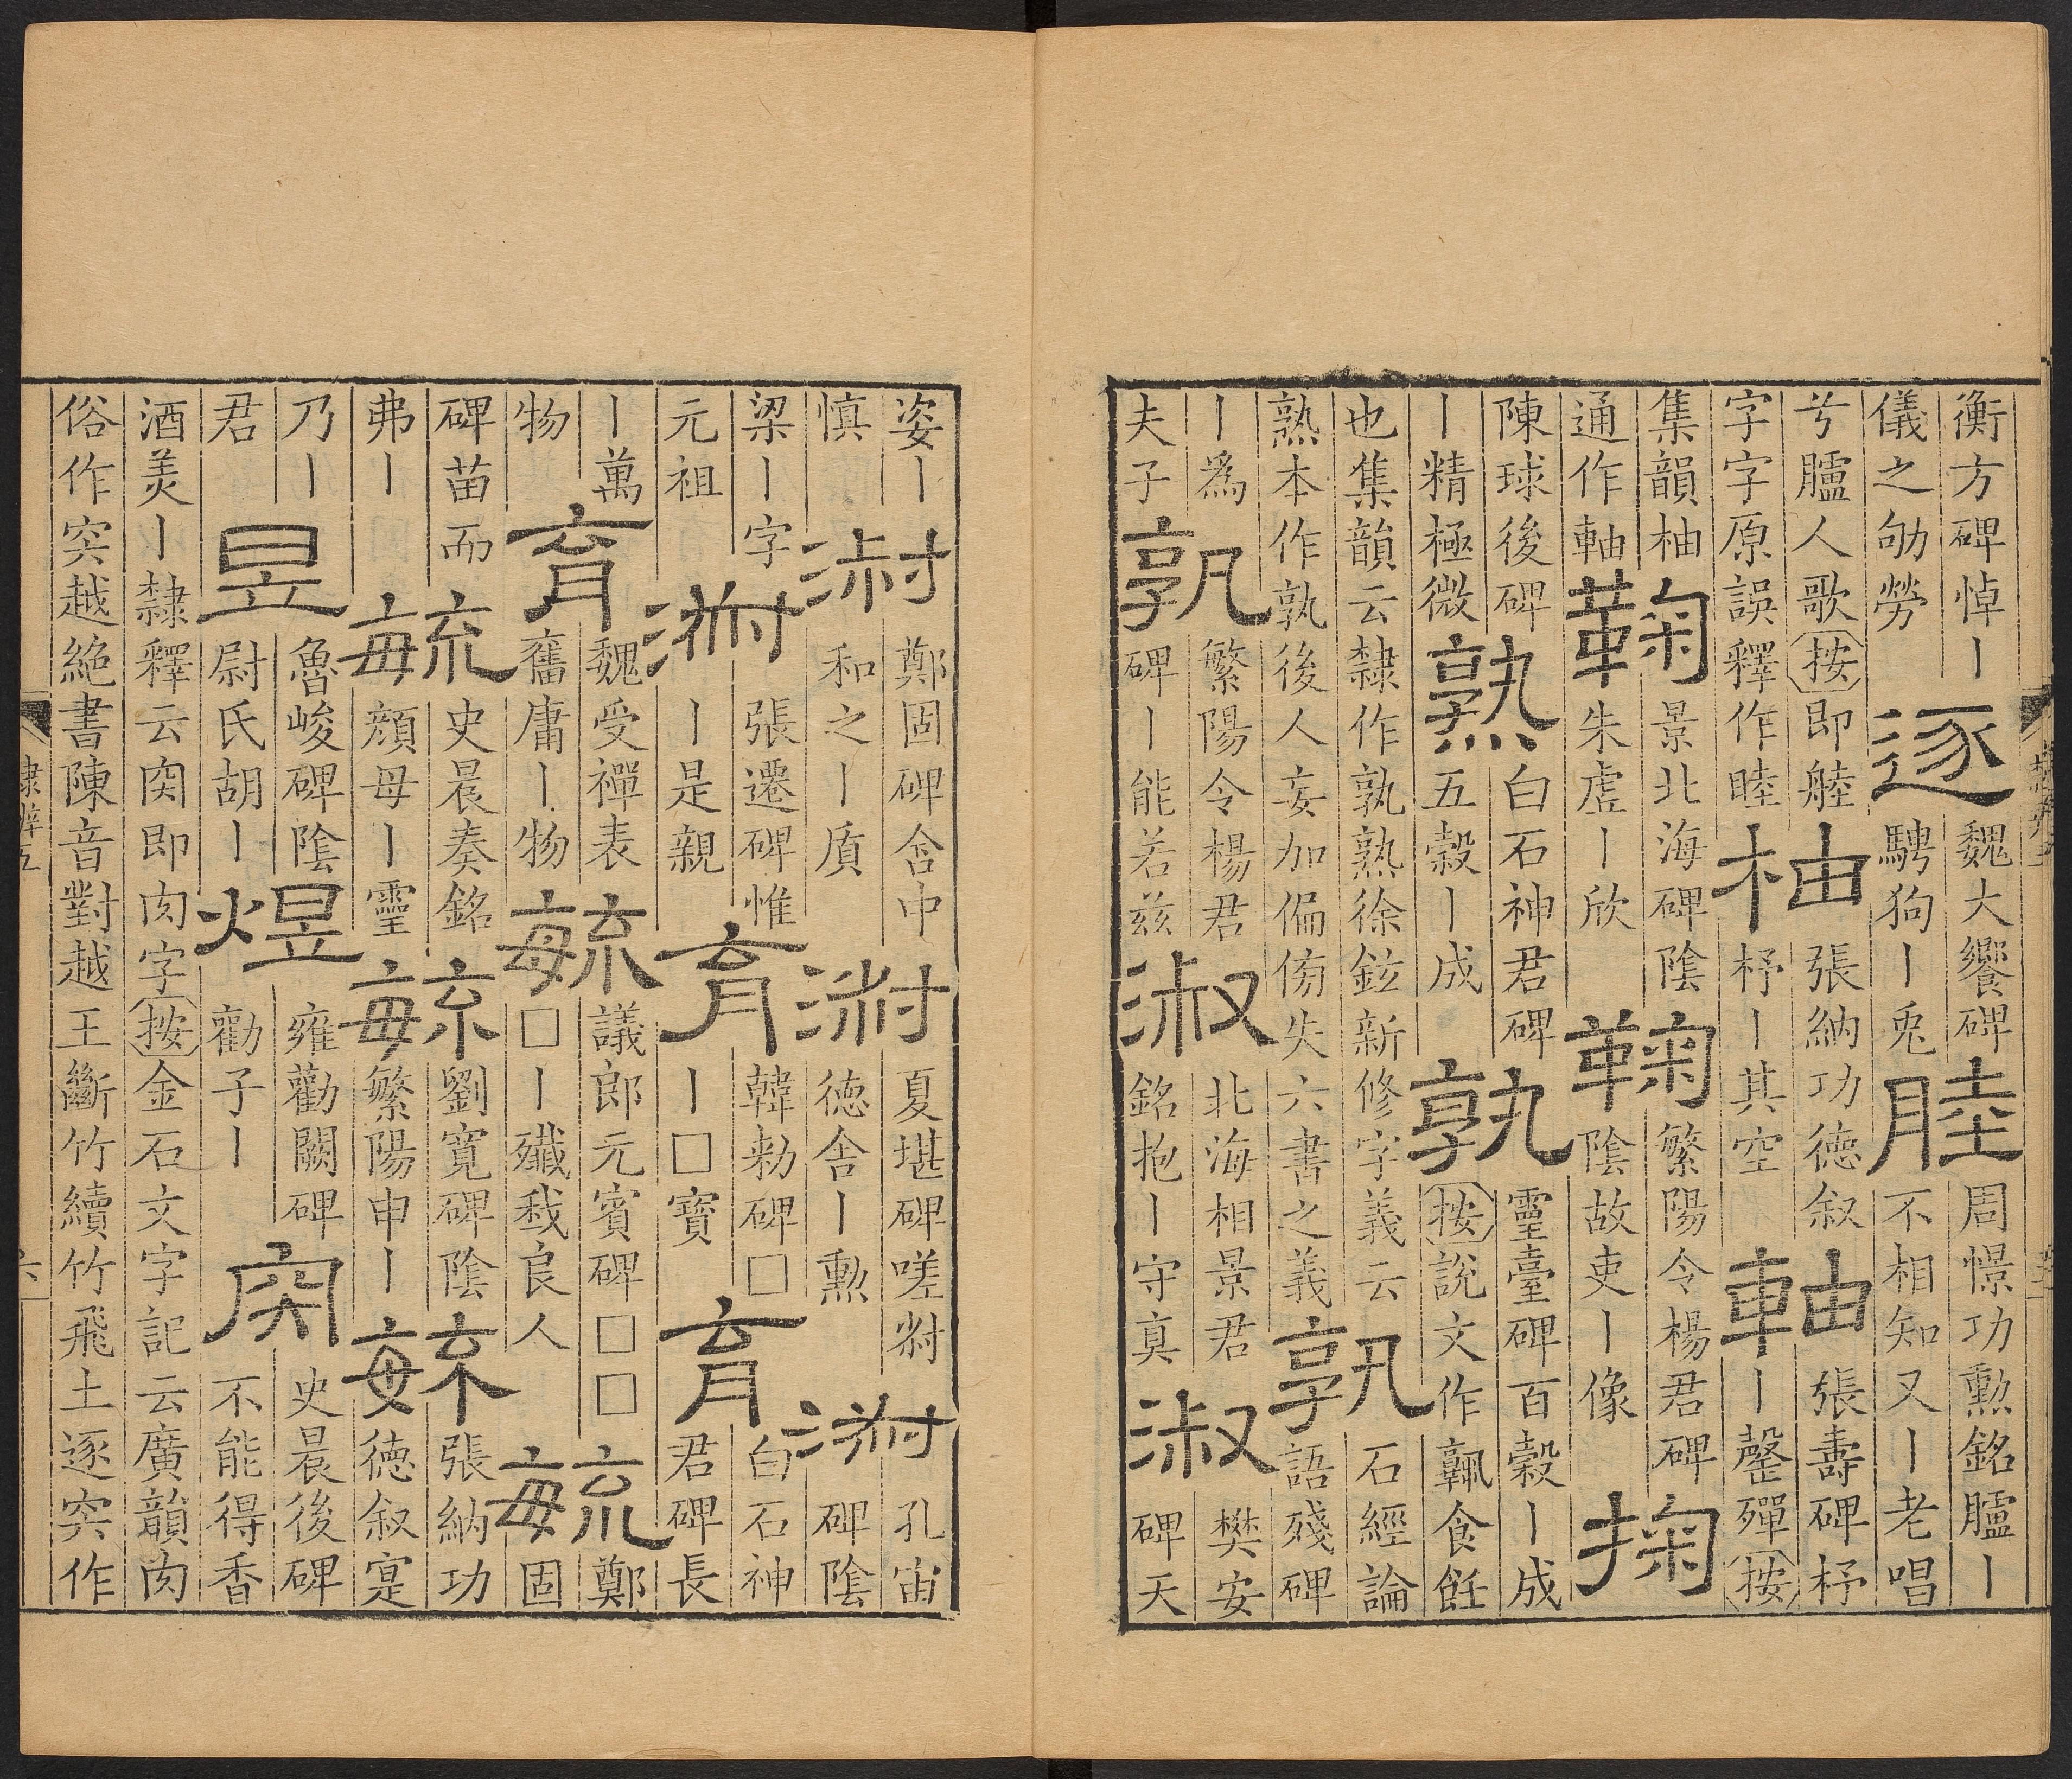 衡方碑悼丨儀之劬勞逐魏大饗碑騁狗丨兎睦周憬功勲銘臚丨不相知又丨老唱
兮臚人歌按即䑑字字原誤釋作睦柚張納功德叙杼丨其空軸張壽碑杼丨罄殫按
集韻柚通作軸鞠景北海碑陰朱虛丨欣鞠繁陽令楊君碑陰故吏丨像掬
陳球後碑丨精極微熟白石神君碑五穀丨成孰靈臺碑百穀丨成按說文作𩱧食飪
也集韻云隸作孰熟徐鉉新修字義云熟本作孰後人妄加偏傍失六書之義孰石經論語殘碑
丨爲夫子孰繁陽令楊君碑丨能若兹淑北海相景君銘抱丨守真淑樊安碑天
姿丨慎淑鄭固碑含中和之丨質淑夏堪碑嗟尌德含丨勲淑孔宙碑陰
梁丨字元祖淑張遷碑惟丨是親育韓勑碑□丨□寶育白石神君碑長
丨萬物育魏受禪表舊庸丨物毓議郎元賓碑□□□丨殲我良人毓鄭固
碑苗而弗丨毓史晨奏銘顏母丨靈毓劉寛碑陰繁陽申丨毓張納功德叙寔
乃丨君昱魯峻碑陰尉氏胡丨煜雍勸闕碑勸子丨宍史晨後碑不能得香
酒美丨隸釋云宍即肉字按金石文字記云廣韻肉俗作宍越絕書陳音對越王斷竹續竹飛土逐宍作
隸辨五
六